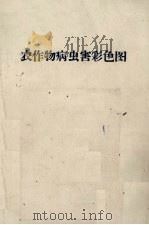 农作物病虫害彩色图